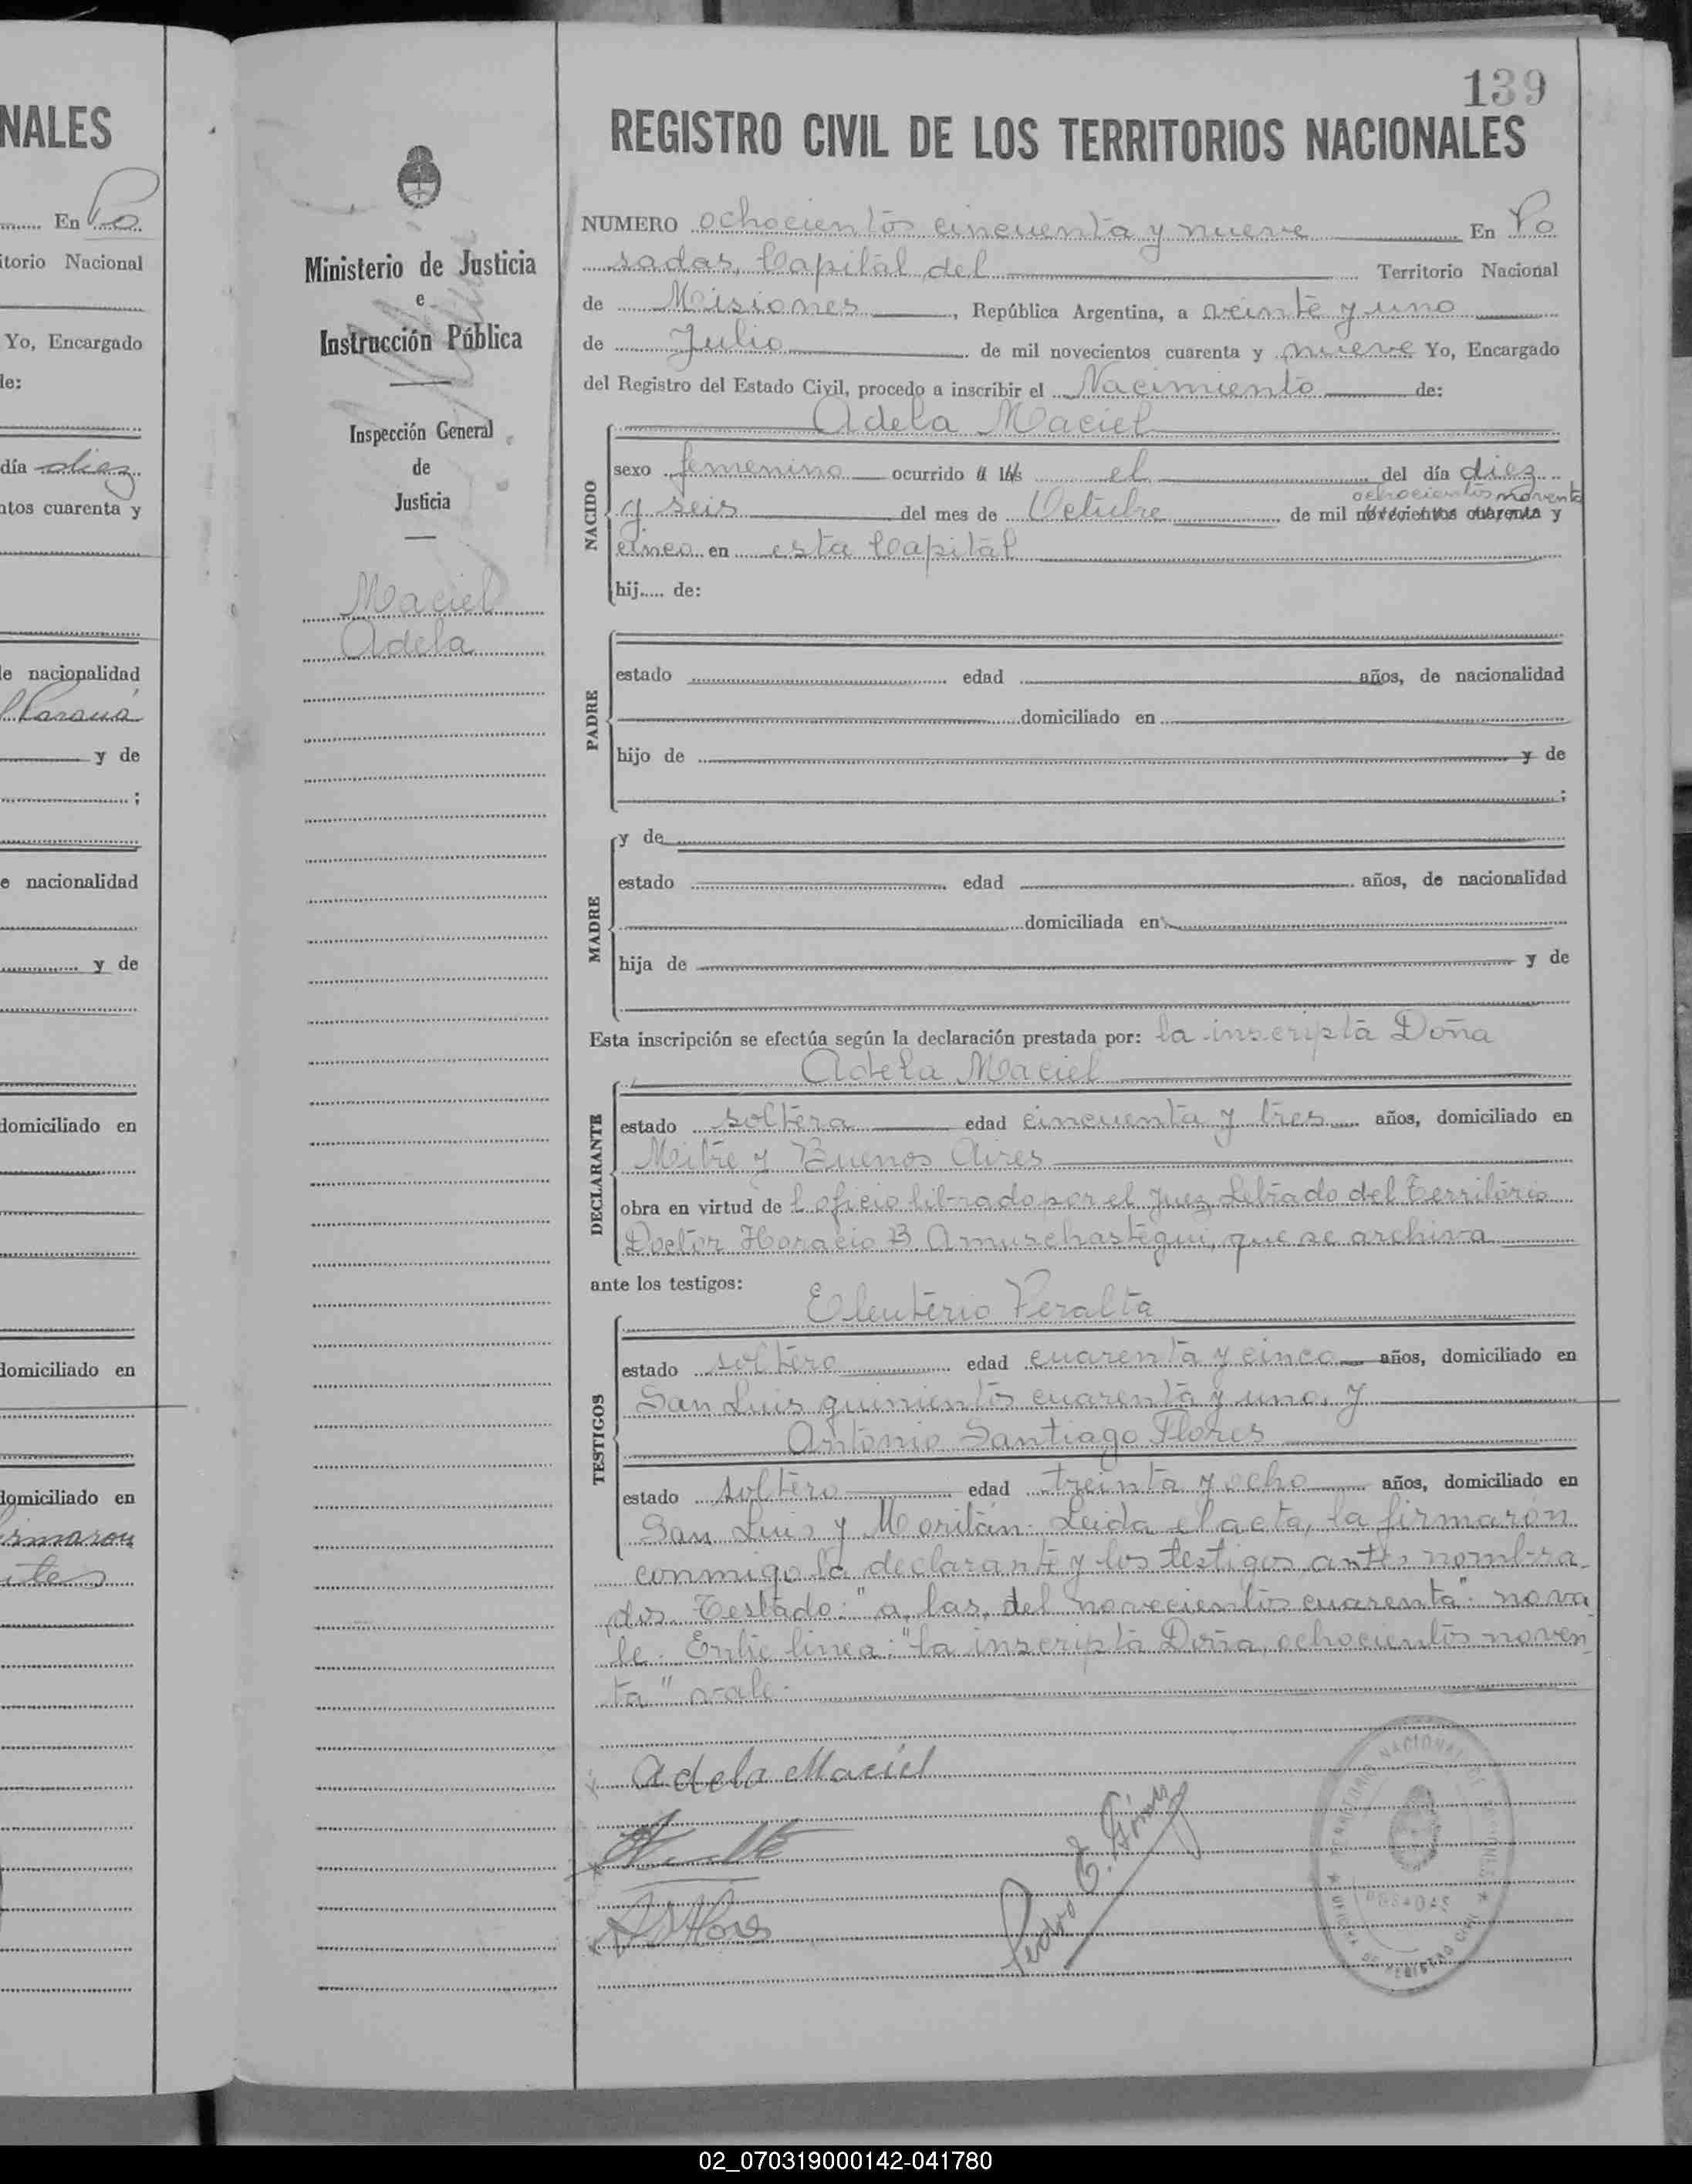 NALES
En Po
itorio Nacional
Yo, Encargado
de:
día diez
ntos cuarenta y
de nacionalidad
Paraná
y de
;
e nacionalidad
y de
domiciliado en
domiciliado en
domiciliado en
firmaron
Ministerio de Justicia
e
Instrucción Pública
Inspección General
de
Justicia
Maciel
Adela
139
REGISTRO CIVIL DE LOS TERRITORIOS NACIONALES
NUMERO ochocientos cincuenta y nueve En Po
sadas, Capital del Territorio Nacional
de Misiones, República Argentina, a veinte y uno
de Julio de mil novecientos cuarenta y nueve Yo, Encargado
del Registro del Estado Civil, procedo a inscribir el Nacimiento de:
Adela Maciel
NACIDO
sexo femenino ocurrido a las el del día diez
ochocientos noventa
y seis del mes de Octubre de mil novecientos cuarenta y
cinco en esta Capital
hij..... de:
PADRE
estado edad años, de nacionalidad
domiciliado en
hijo de y de
;
MADRE
y de
estado edad años, de nacionalidad
domiciliada en
hija de y de
Esta inscripción se efectúa según la declaración prestada por: la inscripta Doña
Adela Maciel
DECLARANTE
estado soltera edad cincuenta y tres años, domiciliado en
Mitre y Buenos Aires
obra en virtud de l oficio librado por el Juez Letrado del Territorio
Doctor Horacio B. Amuschastegui, que se archiva
ante los testigos:
Eleuterio Peralta
TESTIGOS
estado soltero edad cuarenta y cinco años, domiciliado en
San Luis quinientos cuarenta y uno, y
Antonio Santiago Flores
estado soltero edad treinta y ocho años, domiciliado en
San Luis y Moritán. Leida el acta, la firmarón
conmigo la declarante y los testigos antes nombra
dos. Testado: "a, las, del novecientos cuarenta" no va
le. Entre linea: "la inscripta Doña, ochocientos noven
ta" vale.
Adela Maciel
Pedro E. Gómez
TERRITORIO NACIONAL DE MISIONES
POSADAS
OFICINA DE REGISTRO CIVIL
02_070319000142-041780